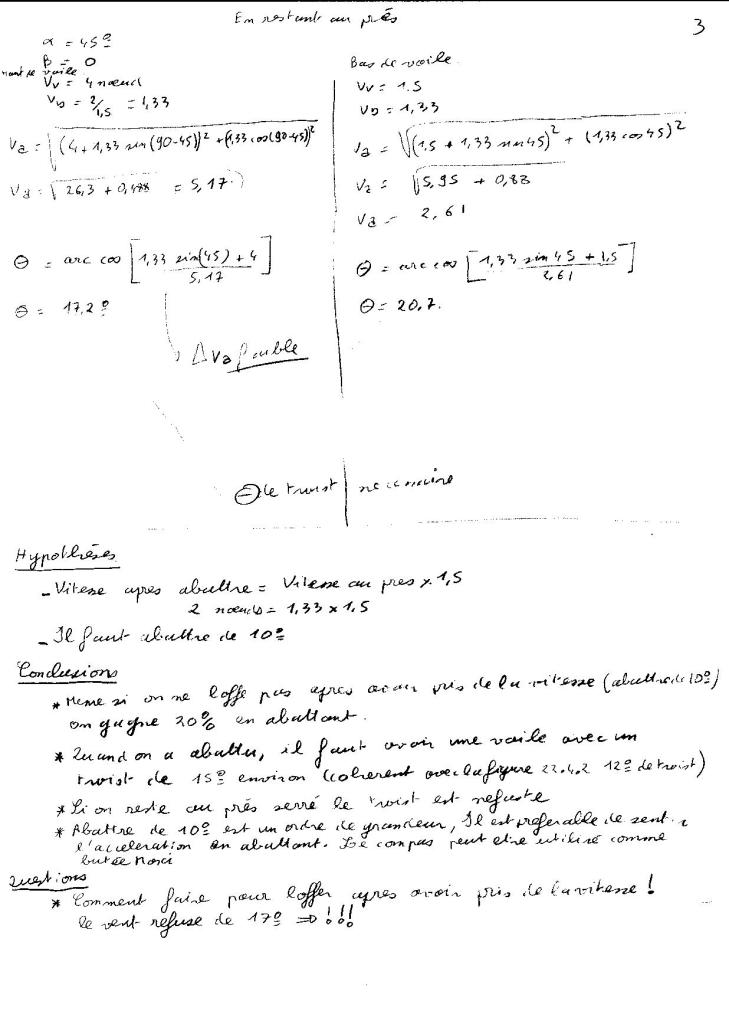 En restant au près
3
α = 45º
β = 0
haut de voile
Vv = 4 nœud
Vb = 2/1,5 = 1,33
Va = √(4 + 1,33 sin(90-45))² + (1,33 cos(90-45))²
Va = √26,3 + 0,488 = 5,17
θ = arc cos [1,33 sin(45) + 4 / 5,17]
θ = 17,2º
Δva faible
Bas de voile
Vv = 1.5
Vb = 1,33
Va = √(1,5 + 1,33 sin 45)² + (1,33 cos 45)²
Va = √5,95 + 0,88
Va = 2,61
θ = arc cos [1,33 sin 45 + 1,5 / 2,61]
θ = 20,7.
⊖ de twist nécessaire
Hypothèses
- Vitesse apres abattre = Vitesse au pres x 1,5
2 nœuds = 1,33 x 1.5
- Il faut abattre de 10º
Conclusions
* Meme si on ne loffe pas apres avoir pris de la vitesse (abattre de 10º)
on gagne 20% en abattant.
* Quand on a abattu, il faut avoir une voile avec un
twist de 15º environ (coherent avec la figure 22.4.2 12º de twist)
* Si on reste au près serré le twist est nefaste
* Abattre de 10º est un ordre de grandeur, Il est preferable de sentir
l'acceleration en abattant. Le compas peut etre utilisé comme
butée
Questions
* Comment faire pour loffer apres avoir pris de la vitesse !
le vent refuse de 17º ⇒ !!!